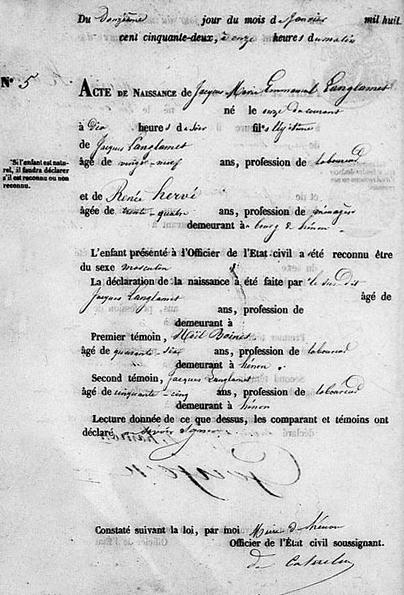 Du Douzième jour du mois de Janvier mil huit
cent cinquante-deux, à onze heures du matin
N° 5
ACTE DE NAISSANCE de Jacques Marie Emmanuel Langlamet
né le onze du courant
à Dix heures du soir fils légitime
de Jacques Langlamet
*Si l'enfant est naturel, il faudra déclarer s'il est reconnu ou non reconnu.
âgé de vingt-neuf ans, profession de laboureur
et de Renée hervé
âgée de trente-quatre ans, profession de ménagère
demeurant à bourg d hénon
L'enfant présenté à l'Officier de l'Etat civil a été reconnu être
du sexe masculin
La déclaration de la naissance à été faite par le sus dit
Jacques Langlamet âgé de
ans, profession de
demeurant à
Premier témoin,
âgé de quarante six ans, profession de laboureur
demeurant à hénon
Second témoin, Jacques Langlamet
âgé de cinquante-cinq ans, profession de laboureur
demeurant à hénon
Lecture donnée de ce que dessus, les comparant et témoins ont
déclaré
Constaté suivant la loi, par moi Maire d hénon
Officier de l'État civil soussignant.